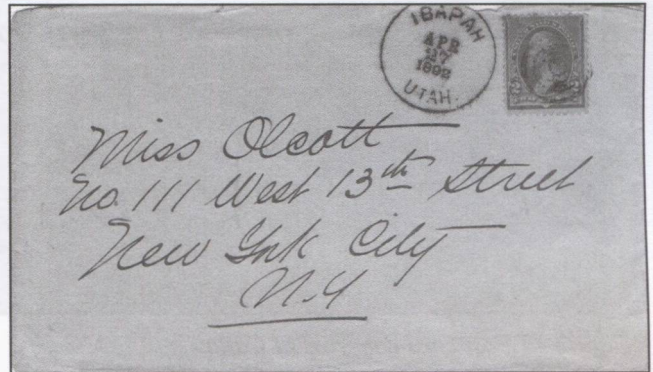 IBAPAH
APR
27
1892
UTAH.
2 2
Miss Olcott
No. 111 West 13th Street
New York City
N.Y